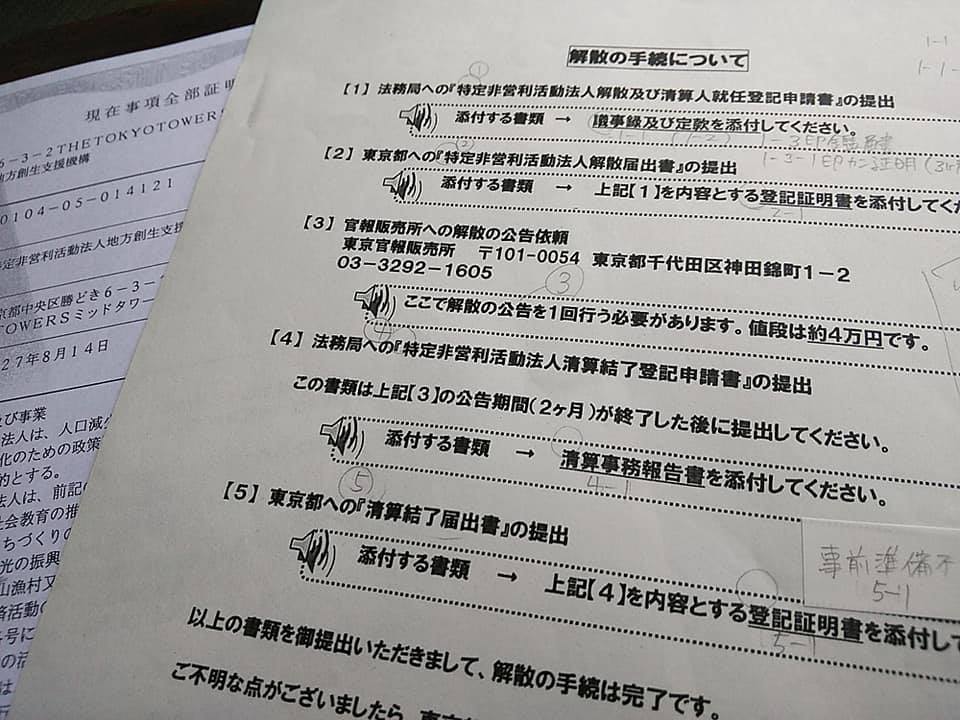 解散の手続について
1-1
1-1-
①
【1】法務局への『特定非営利活動法人解散及び清算人就任登記申請書』の提出
添付する書類 → 議事録及び定款を添付してください。
1-1
1-2
②
【2】東京都への『特定非営利活動法人解散届出書』の提出
添付する書類 → 上記【1】を内容とする登記証明書を添付してくだ
2-1
【3】官報販売所への解散の公告依頼
東京官報販売所 〒101-0054 東京都千代田区神田錦町1-2
03-3292-1605
③
ここで解散の公告を1回行う必要があります。値段は約4万円です。
④
【4】法務局への『特定非営利活動法人清算結了登記申請書』の提出
この書類は上記【3】の公告期間(2ヶ月)が終了した後に提出してください。
添付する書類 → 清算事務報告書を添付してください。
4-1
⑤
【5】東京都への『清算結了届出書』の提出
添付する書類 → 上記【4】を内容とする登記証明書を添付して
5-1
事前準備不
5-1
以上の書類を御提出いただきまして、解散の手続は完了です。
ご不明な点がございましたら、東京
現在事項全部証明
6-3-2THETOKYOTOWERS
地方創生支援機構
0104-05-014121
定非営利活動法人地方創生支援
京都中央区勝どき6-3-
TOWERSミッドタワー
27年8月14日
及び事業
法人は、人口減少
化のための政策
的とする。
法人は、前記の
社会教育の推
ちづくりの
光の振興
山漁村又
済活動の
号に
の活
は